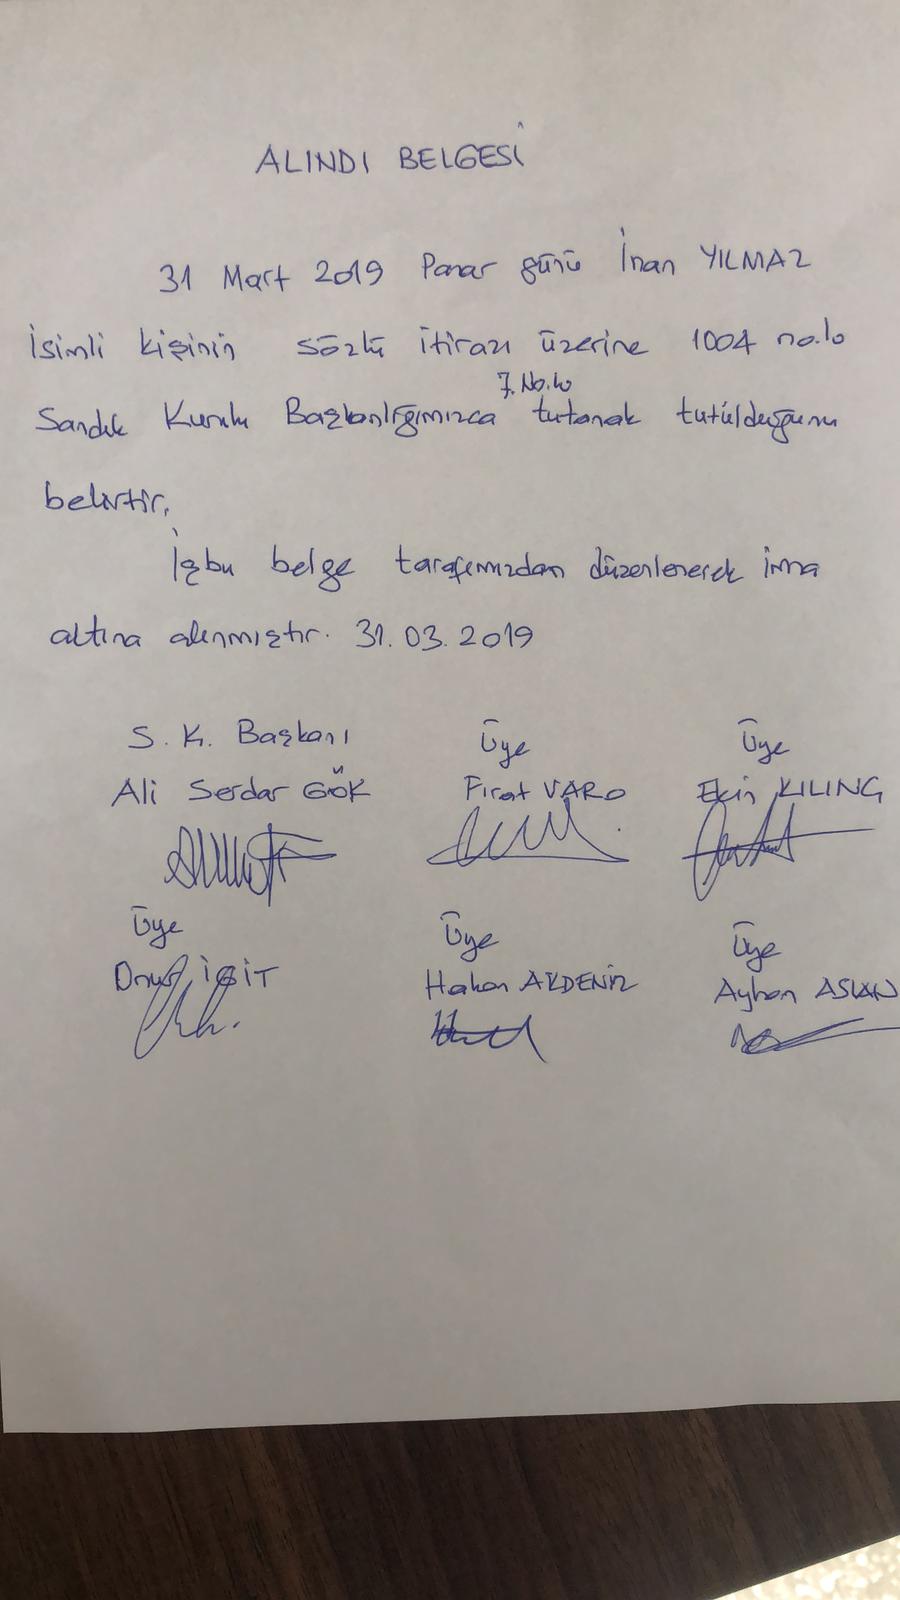 ALINDI BELGESİ
31 Mart 2019 Pazar günü İnan YILMAZ
isimli kişinin sözlü itirazı üzerine 1004 no.lo
7. No.lo
Sandık Kurulu Başkanlığımızca tutanak tutulduğunu
belirtir.
İşbu belge tarafımızdan düzenlenerek imza
altına alınmıştır. 31.03.2019
S. K. Başkanı Üye Üye
Ali Serdar GÖK Fırat VARO Ekin KILINÇ
Üye Üye Üye
Onur İGİT Hakan AKDENİZ Ayhan ASLAN